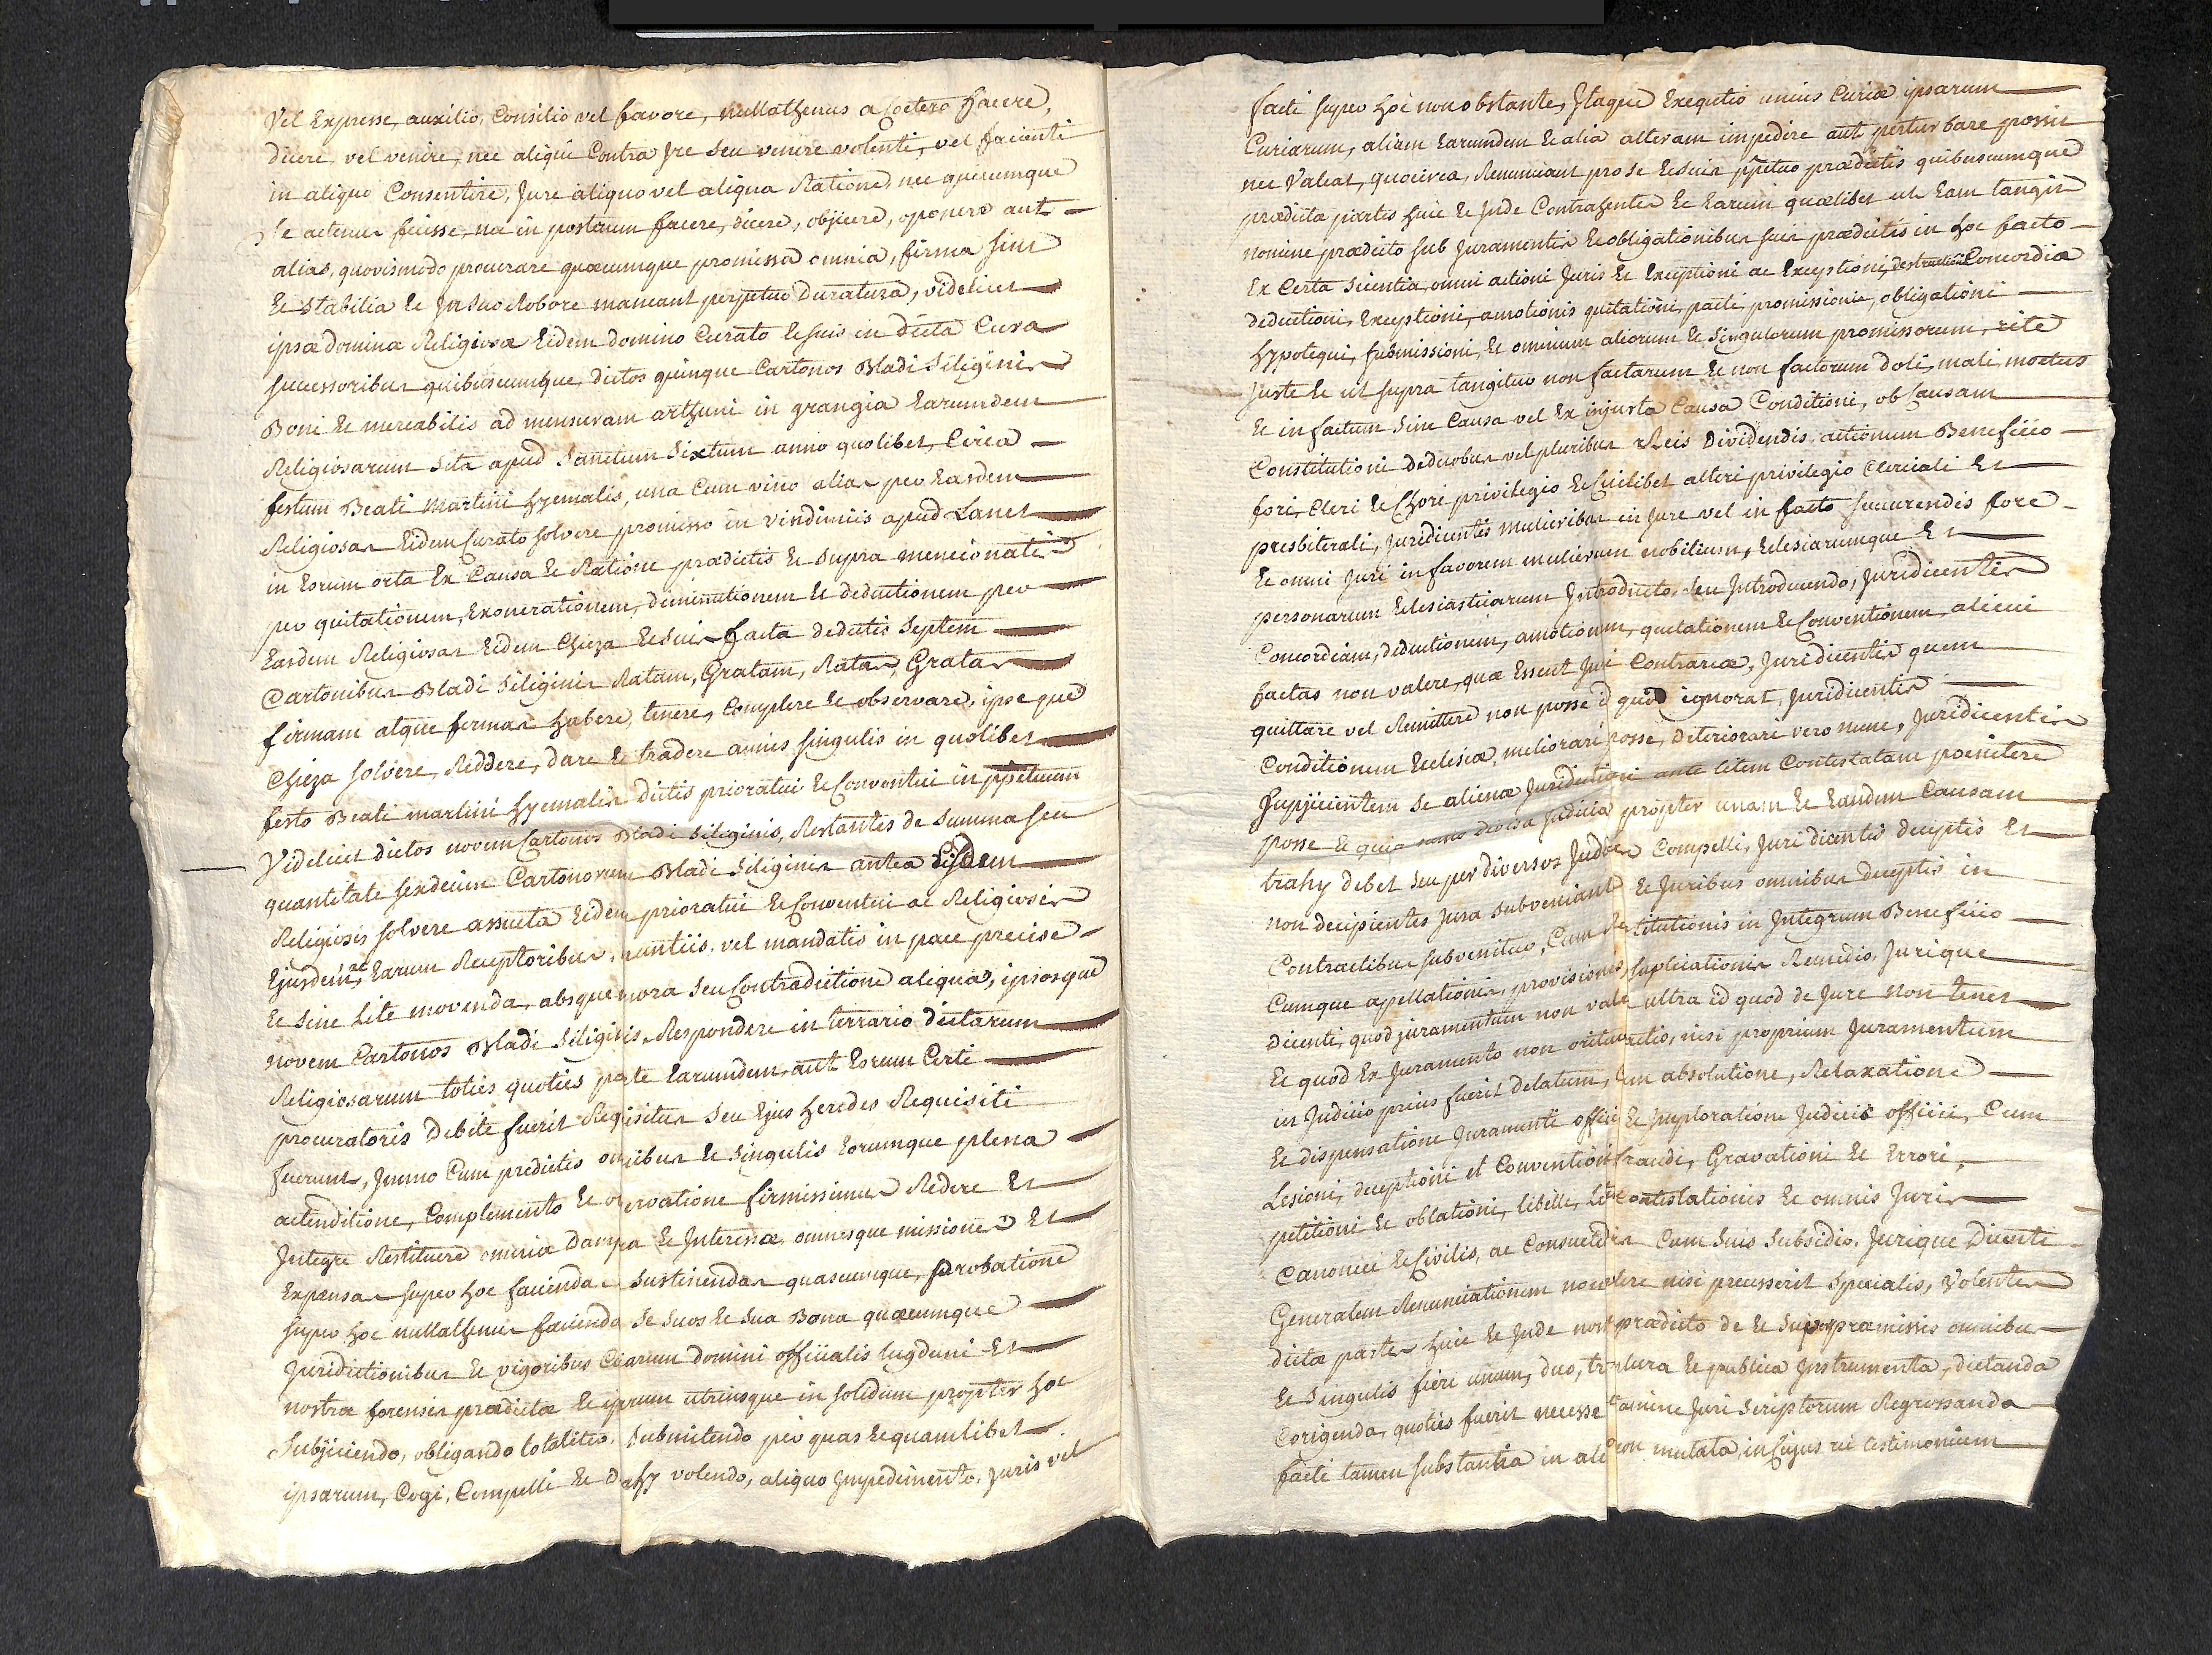 Vel Expresse, auxilio, Consilio vel favore, nullathenus a Coetero facere,
dicere vel venire, nec aliqui Contra Jre seu venire volenti, vel facienti
in aliquo Consentire, Jure aliquo vel aliqua Ratione, nec quicumque
se actenus fecisse, nec in posterum facere, dicere, objicere, oponere aut
alias, quovismodo procurare quæcumque promissa omnia, firma sint
Et Stabilia Et Jn suo Robore maneant perpetuo Duratura, videlicet
ipsæ dominæ Religiosæ Eidem domino Curato Et suis in dicta Cura
successoribus quibuscumque dictos quinque Cartonos Bladi Siliginis
Boni Et mercabilis ad mensuram arthuni in grangia Earumdem
Religiosarum Sita apud Sanctum Sixtum anno quolibet, Circa
festum Beati Martini hyemalis, una Cum vino alias per Easdem
Religiosas Eidem Curato solvere promisso in vindimiis apud Lanet
in Eorum orta Ex Causa Et Ratione prædictis Et Supra mencionatis
per quitationem, Exonerationem, Diminutionem Et deductionem per
Easdem Religiosas Eidem Chieza Et Suis facta deductis Septem
Cartonibus Bladi Siliginis Ratam, Gratam, Ratas, Gratas
firmam atque firmas habere, tenere, Complere Et observare, ipseque
Chieza solvere, Reddere, Dare Et tradere annis singulis in quolibet
festo Beati martini hyemalis dictis prioratui Et Conventui in ppetuum
Videlicet dictos novem Cartonos Bladi Siliginis, Restantes de Summa seu
quantitate sexdecim Cartonorum Bladi Siliginis antea Eisdem
Religiosis solvere assueta Eidem prioratui Et Conventui ac Religiosis
Ejusdem, Earum Receptoribus, nuntiis, vel mandatis in pace precise
Et Sine Lite movenda, absque mora seu Contradictione aliqua, ipsosque
novem Cartonos Bladi Siliginis Respondere in terrario dictarum
Religiosarum toties quoties parte Earumdem aut Eorum Certi
procuratoris Debite fuerit Requisitus Seu Ejus heredes Requisiti
fuerunt, Jmmo Cum predictis omnibus Et Singulis Eorumque plena
actenditione, Complemento Et observatione firmissimus Redere Et
Jntegre Restituere omnia Dampna Et Jnteresse, omnesque missiones Et
Expensas super hoc faciendas Sustinendas quascumque, probatione
super hoc nullathenus facienda Se Suos Et Sua Bona quæcumque
Juridictionibus Et vigoribus Curiarum Domini officialis Lugduni Et
nostræ forensis prædictæ Et ipsarum utriusque in solidum propter hoc
Subjiciendo, obligando totaliter, Submitendo per quas Et quamlibet
ipsarum, Cogi, Compelli Et Dahy volendo, aliquo Jmpedimento, Juris vel
facti super hoc non obstante, Jtaque Exequtio unius Curiæ ipsarum
Curiarum, aliam Earumdem Et alia alteram impedire aut perturbare possit
nec Valeat, quocirca, Renunciant pro Se Et Suis ppetuo prædictis quibuscumque
prædicta partes huic Et Jnde Contrahentes Et Earum quælibet ut Eam tangit
nomine prædicto sub Juramentis Et obligationibus suis prædictis in hoc facto
Ex Certa Scientia, omni actioni Juris Et Exceptioni ac Exceptioni, destructioni Concordiæ
deductioni, Exceptioni, amotionis quitationi, pacti, promissionis, obligationi
hypotequi, submissioni, Et omnium aliorum Et Singulorum promissorum, rite
Juste Et ut supra tangitur non factarum Et non factorum Doli, mali, moetus
Et in factum Sine Causa vel Ex injusta Causa Conditioni, ob Causam
Constitutioni de duobus vel pluribus Reis Dividendis actionum Beneficio
fori, Cleri Et Chori privilegio Et Cuilibet alteri privilegio Clericali Et
presbiterali, Juridicentis mulieribus in Jure vel in facto succurendis fore
Et omni Juri in favorem mulierum nobilium, Eclesiarumque Et
personarum Eclesiasticarum Jntroducto, seu Jntroducendo, Juridicentis
Concordiam, Deductionem, amotionem, quitationem Et Conventionem alicui
factas non valere, quæ Essent Juri Contrariæ, Juridicentis quem
quittare vel Remittere non posse id quod ignorat, Juridicentis
Conditionem Ecclesiæ, meliorari posse, Deteriorari vero nunc, Juridicentis
supjicientem se alienæ Juridictioni ante litem Contestatam poenitere
posse Et quis diversa Judicia propter unam Et Eandem Causam
trahy debet seu per diversos Judices Compelli, Juridicentis deceptis Et
non decipientes Jura subveniant Et Juribus omnibus deceptis in
Contractibus subvenitur, Cum Restitutionis in Jntegrum Beneficio
Cumque apellationis, provisionis, suplicationis Remedio, Jurique
Dicenti, quod juramentum non valet ultra id quod de Jure non tenet
Et quod Ex Juramento non oritur actio, nisi proprium Juramentum
in Judicio prius fuerit Delatum, Cum absolutione, Relaxatione
Et dispensatione Juramenti officii Et Jmploratione Judicis officii, Cum
Lesioni, deceptioni et Conventioni fraudi, Gravationi Et Errori,
petitioni Et oblationi, libelli, Litis Contestationis Et omnis Juris
Canonici Et Civilis, ac Consuetudinis Cum Suis Subsidio, Jurique Dicenti
Generalem Renunciationem non valere nisi precesserit Specialis, Volentes
dictæ partes huic Et Jnde nomine prædicto de Et Super præmissis omnibus
Et Singulis fieri unum, duo, tria plura Et publica Jnstrumenta, dictanda
Corigenda, quoties fuerit necesse Jurisscriptorum Regrossanda
facti tamen substantia in aliquo non mutata, in Cujus rei testimonium